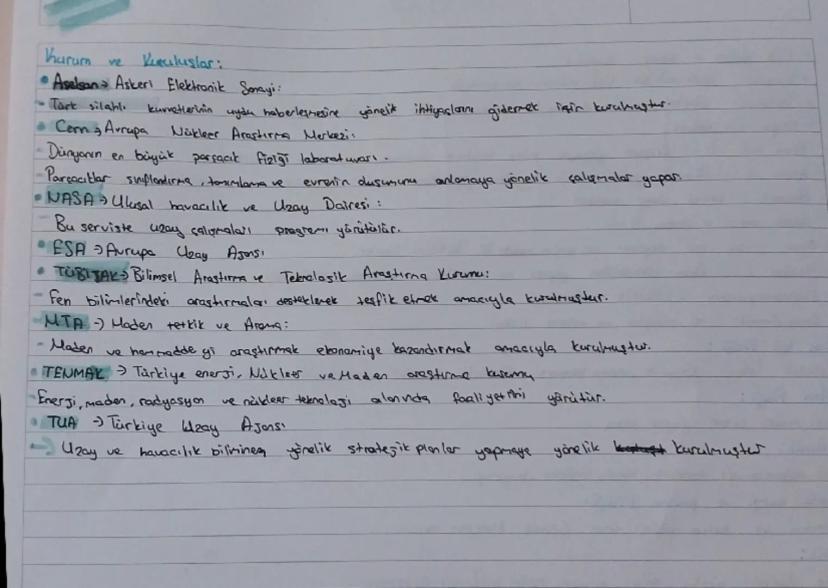 Kurum ve Kuruluşlar:
• Aselsan → Askeri Elektronik Sanayi:
- Türk silahlı kuvvetlerinin uydu haberleşmesine yönelik ihtiyaçlarını gidermek için kurulmuştur.
• Cern → Avrupa Nükleer Araştırma Merkezi:
- Dünyanın en büyük parçacık fiziği laboratuvarı.
- Parçacıklar sınıflandırma, tanımlama ve evrenin oluşumunu anlamaya yönelik çalışmalar yapar.
• NASA → Ulusal havacılık ve Uzay Dairesi:
- Bu serviste uzay çalışmaları programı yürütülür.
• ESA → Avrupa Uzay Ajansı
• TÜBİTAK → Bilimsel Araştırma ve Teknolojik Araştırma Kurumu:
- Fen bilimlerindeki araştırmaları destekleyerek teşfik etmek amacıyla kurulmuştur.
MTA → Maden tetkik ve Arama:
- Maden ve hammaddeyi araştırmak ekonomiye kazandırmak amacıyla kurulmuştur.
• TENMAK → Türkiye enerji, Nükleer ve Maden araştırma kurumu
- Enerji, maden, radyasyon ve nükleer teknoloji alanında faaliyetini yürütür.
• TUA → Türkiye Uzay Ajansı
- Uzay ve havacılık bilimine yönelik stratejik planlar yapmaya yönelik kurulmuştur